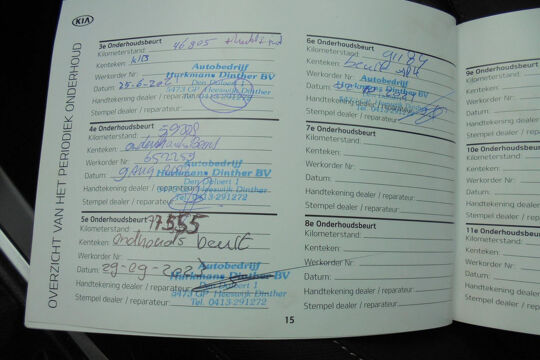 KIA
OVERZICHT VAN HET PERIODIEK ONDERHOUD
3e Onderhoudsbeurt
Kilometerstand: 46805
Kenteken:
Werkorder Nr:
Datum: 25-6-20
Handtekening dealer / reparateur:
Stempel dealer / reparateur:
Autobedrijf
Hurkmans Dinther BV
Den Dolvert 1
5473 GP Heeswijk Dinther
Tel. 0413-291272
4e Onderhoudsbeurt
Kilometerstand:
Kenteken: onderhoudsbeurt
Werkorder Nr: 652259
Datum: 9 Aug
Handtekening dealer / reparateur:
Stempel dealer / reparateur:
Autobedrijf
Hurkmans Dinther BV
Den Dolvert 1
5473 GP Heeswijk Dinther
Tel. 0413-291272
5e Onderhoudsbeurt
Kilometerstand: 77555
Kenteken: ondhouds beurt
Werkorder Nr:
Datum: 29-09-202
Handtekening dealer / reparateur:
Stempel dealer / reparateur:
Autobedrijf
Hurkmans Dinther BV
Den Dolvert 1
5473 GP Heeswijk Dinther
Tel. 0413-291272
6e Onderhoudsbeurt
Kilometerstand: 91184
Kenteken: beurt
Werkorder Nr:
Datum:
Handtekening dealer / reparateur:
Stempel dealer / reparateur:
Autobedrijf
Hurkmans Dinther BV
Den Dolvert 1
5473 GP Heeswijk Dinther
Tel. 0413-291272
7e Onderhoudsbeurt
Kilometerstand:
Kenteken:
Werkorder Nr:
Datum:
Handtekening dealer / reparateur:
Stempel dealer / reparateur:
8e Onderhoudsbeurt
Kilometerstand:
Kenteken:
Werkorder Nr:
Datum:
Handtekening dealer / reparateur:
Stempel dealer / reparateur:
15
9e Onderhoudsbeurt
Kilometerstand:
Kenteken:
Werkorder Nr:
Datum:
Handtekening dealer
Stempel dealer / r
10e Onderhoudsb
Kilometerstand:
Kenteken:
Werkorder Nr:
Datum:
Handtekening dealer
Stempel dealer / re
11e Onderhoudsb
Kilometerstand:
Kenteken:
Werkorder Nr:
Datum:
Handtekening deale
Stempel dealer / rep